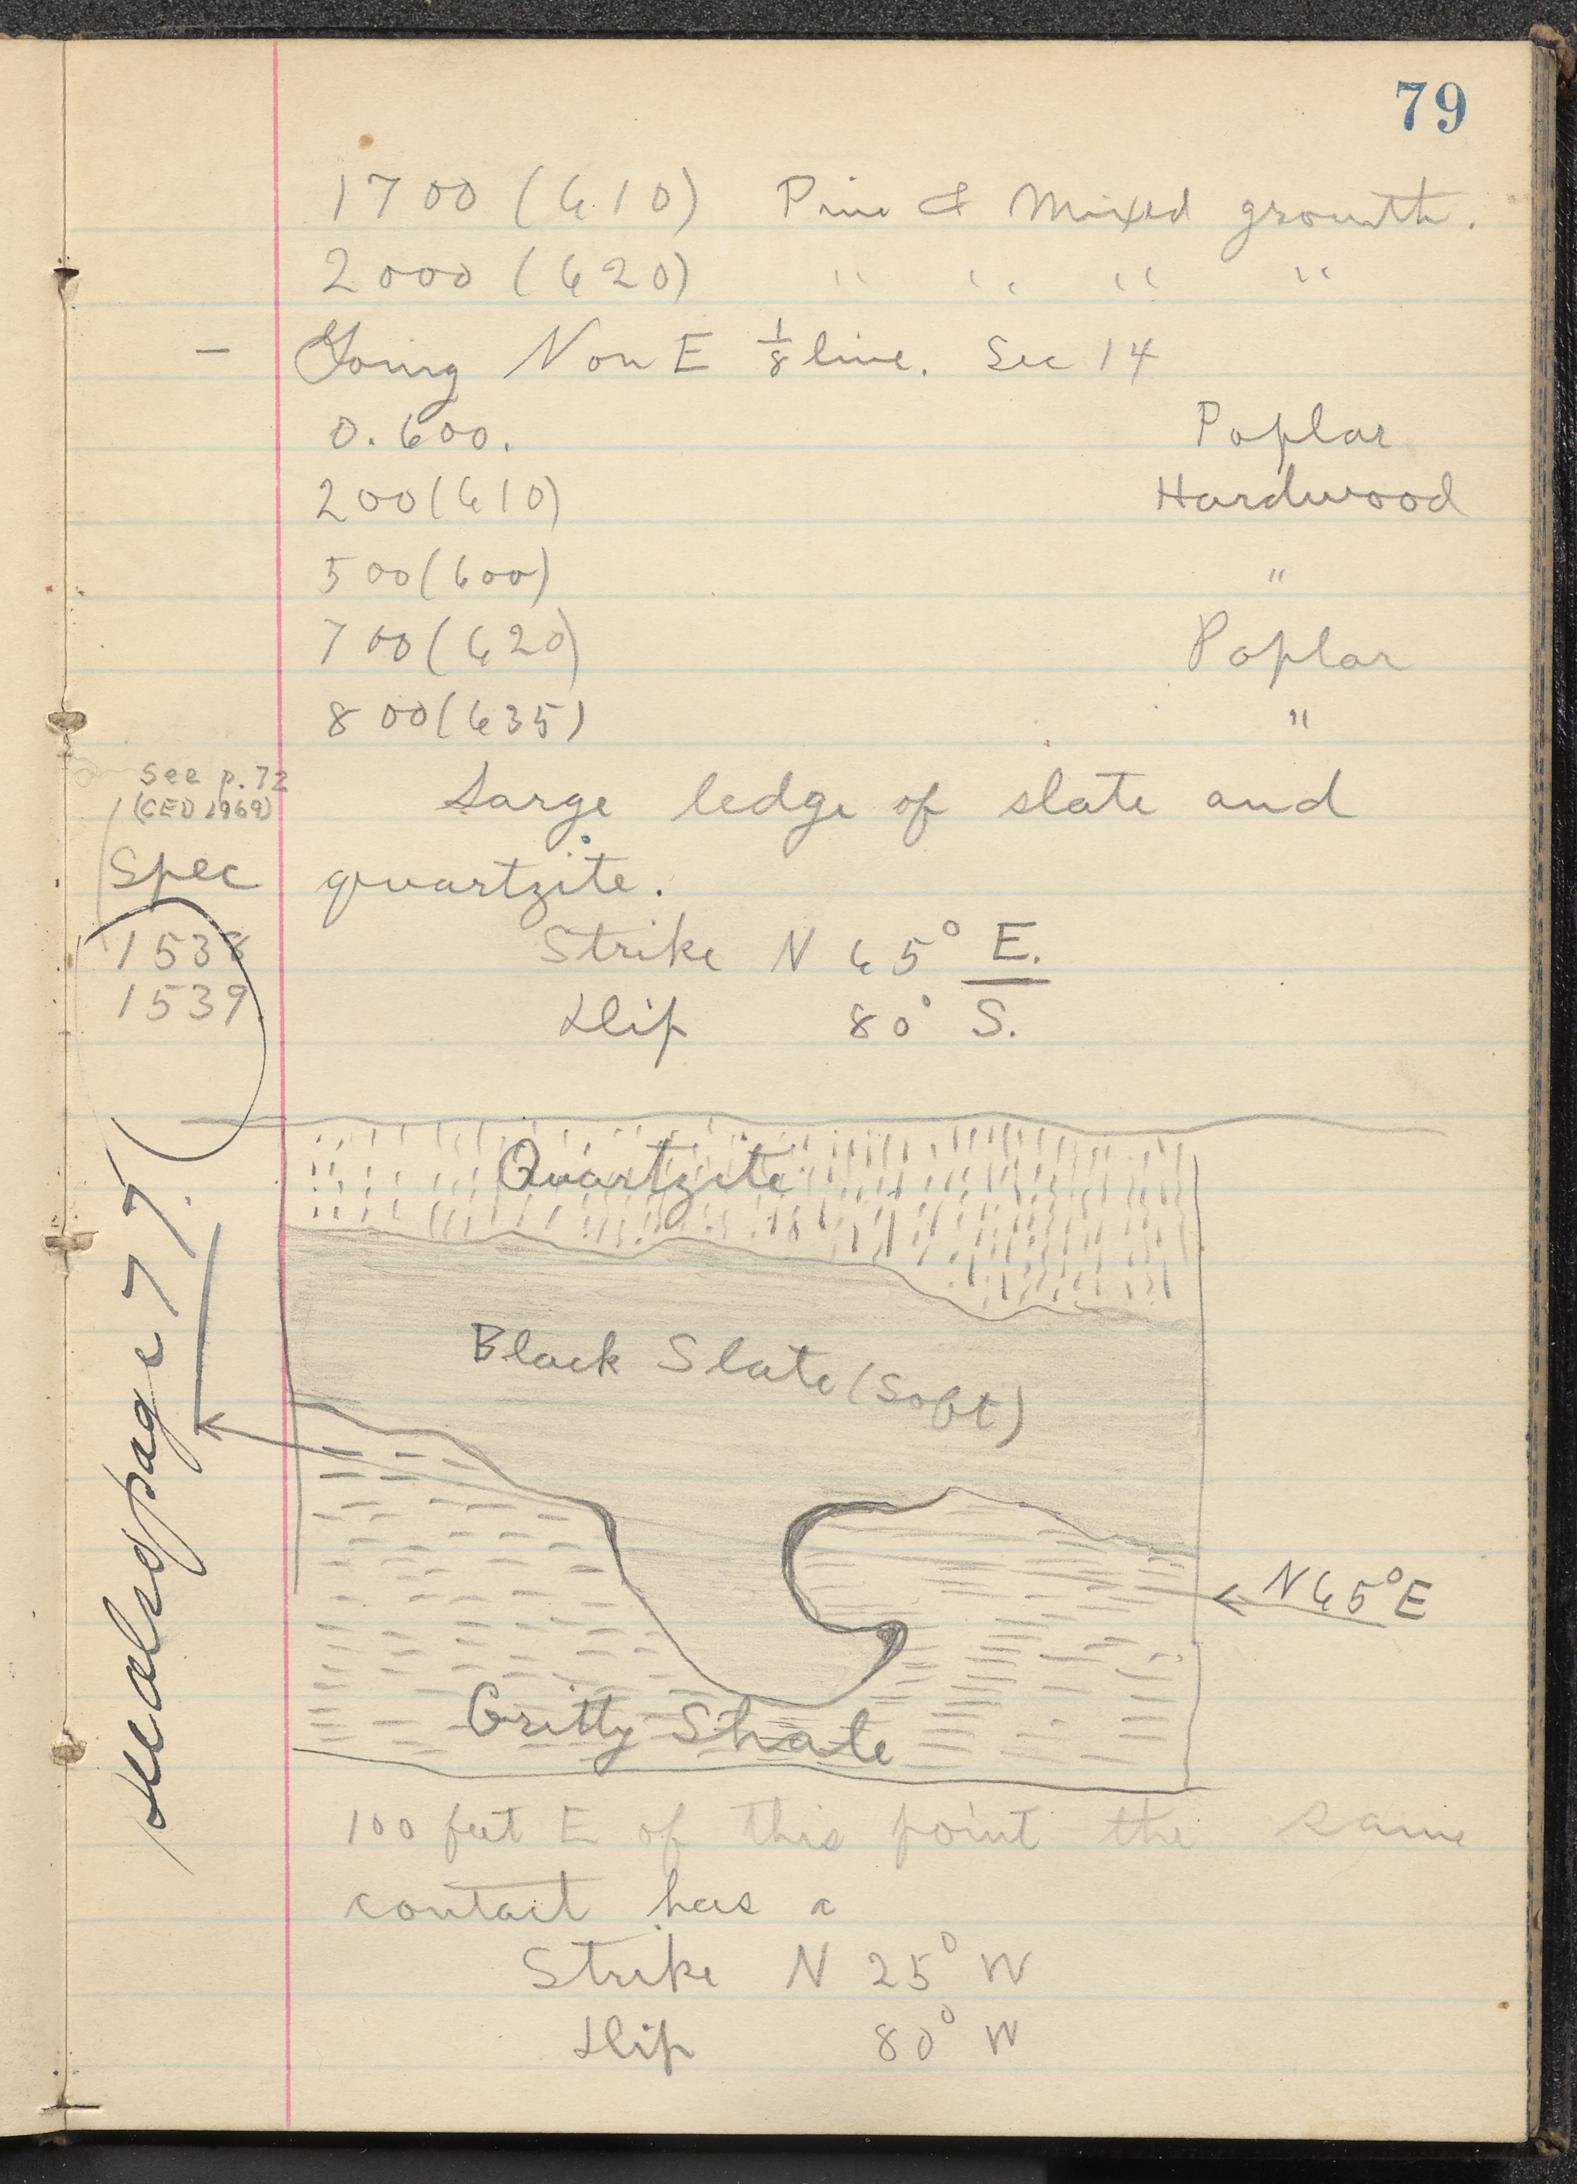 79
1700 (610) Pine & Mixed growth.
2000 (620) " " " "
— Going N on E 1/8 line. Sec 14
0. 600. Poplar
200 (610) Hardwood
500 (600) "
700 (620) Poplar
800 (635) "
See p. 72
(CED 1969)
Large ledge of slate and
Spec quartzite.
1538 Strike N 65° E.
1539 Dip 80° S.
Quartzite
Black Slate (Soft)
N 65° E
Gritty Shale
see also page 77.
100 feet E of this point the same
contact has a
Strike N 25° W
Dip 80° W